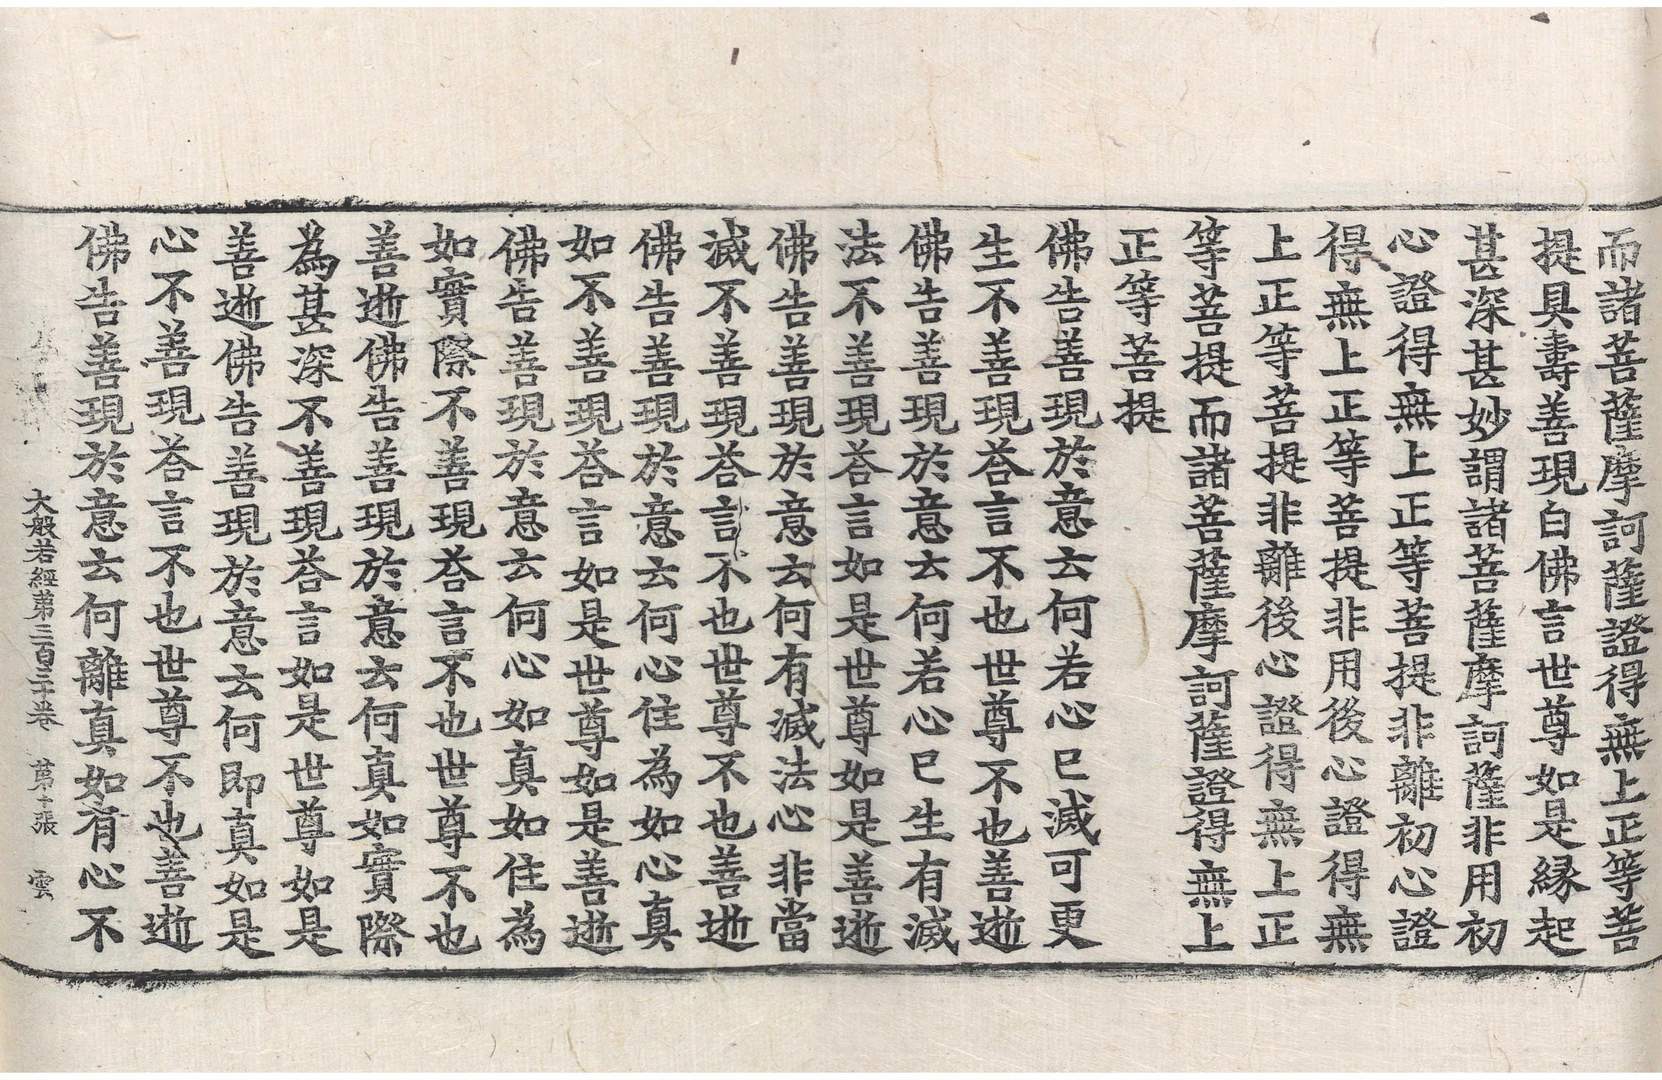 而諸菩薩摩訶薩證得無上正等菩
提具壽善現白佛言世尊如是縁起
甚深甚妙謂諸菩薩摩訶薩非用初
心證得無上正等菩提非離初心證
得無上正等菩提非用後心證得無
上正等菩提非離後心證得無上正
等菩提而諸菩薩摩訶薩證得無上
正等菩提
佛告善現於意云何若心已滅可更
生不善現荅言不也世尊不也善逝
佛告善現於意云何若心已生有滅
法不善現荅言如是世尊如是善逝
佛告善現於意云何有滅法心非當
滅不善現荅言不也世尊不也善逝
佛告善現於意云何心住為如心真
如不善現荅言如是世尊如是善逝
佛告善現於意云何心如真如住為
如實際不善現荅言不也世尊不也
善逝佛告善現於意云何真如實際
為甚深不善現荅言如是世尊如是
善逝佛告善現於意云何即真如是
心不善現荅言不也世尊不也善逝
佛告善現於意云何離真如有心不
大般若經第三百三十卷 第十張 雲